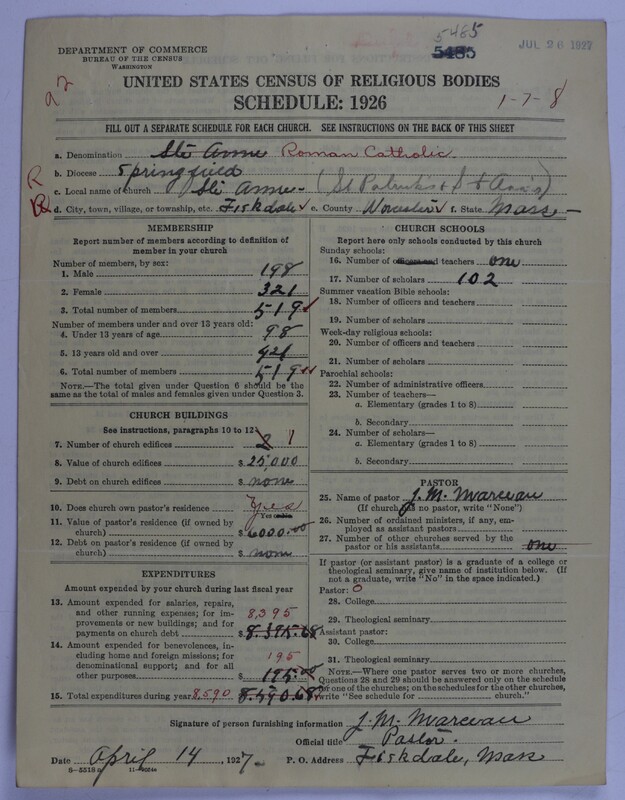 5485
5485
JUL 26 1927
DEPARTMENT OF COMMERCE
BUREAU OF THE CENSUS
WASHINGTON
UNITED STATES CENSUS OF RELIGIOUS BODIES
SCHEDULE: 1926
1-7-8
FILL OUT A SEPARATE SCHEDULE FOR EACH CHURCH. SEE INSTRUCTIONS ON THE BACK OF THIS SHEET
a. Denomination Ste Anne Roman Catholic
b. Diocese Springfield
R
c. Local name of church Ste Anne (St Patrick's & St Ann's)
d. City, town, village, or township, etc. Fiskdale e. County Worcester f. State Mass
MEMBERSHIP
Report number of members according to definition of
member in your church
Number of members, by sex:
1. Male 198
2. Female 321
3. Total number of members 519
Number of members under and over 13 years old:
4. Under 13 years of age 98
5. 13 years old and over 421
6. Total number of members 519
NOTE.—The total given under Question 6 should be the
same as the total of males and females given under Question 3.
CHURCH BUILDINGS
See instructions, paragraphs 10 to 12
7. Number of church edifices 2 1
8. Value of church edifices $ 25,000
9. Debt on church edifices $ none
10. Does church own pastor's residence? Yes
Yes or No
11. Value of pastor's residence (if owned by
church) $ 6000.00
12. Debt on pastor's residence (if owned by
church) $ none
EXPENDITURES
Amount expended by your church during last fiscal year
13. Amount expended for salaries, repairs,
and other running expenses; for im-
provements or new buildings; and for
payments on church debt $ 8,395 8.395.68
14. Amount expended for benevolences, in-
cluding home and foreign missions; for
denominational support; and for all
other purposes $ 195 195.00
15. Total expenditures during year 8,590 8.590.68
CHURCH SCHOOLS
Report here only schools conducted by this church
Sunday schools:
16. Number of officers and teachers one
17. Number of scholars 102
Summer vacation Bible schools:
18. Number of officers and teachers
19. Number of scholars
Week-day religious schools:
20. Number of officers and teachers
21. Number of scholars
Parochial schools:
22. Number of administrative officers
23. Number of teachers—
a. Elementary (grades 1 to 8)
b. Secondary
24. Number of scholars—
a. Elementary (grades 1 to 8)
b. Secondary
PASTOR
25. Name of pastor J. M. Marceau
(If church has no pastor, write "None")
26. Number of ordained ministers, if any, em-
ployed as assistant pastors
27. Number of other churches served by the
pastor or his assistants one
If pastor (or assistant pastor) is a graduate of a college or
theological seminary, give name of institution below. (If
not a graduate, write "No" in the space indicated.)
Pastor: O
28. College
29. Theological seminary
Assistant pastor:
30. College
31. Theological seminary
NOTE.—Where one pastor serves two or more churches,
Questions 28 and 29 should be answered only on the schedule
for one of the churches; on the schedules for the other churches,
write "See schedule for church."
Signature of person furnishing information J. M. Marceau
Official title Pastor.
Date April 14, 1927. P. O. Address Fiskdale, Mass
8-5518